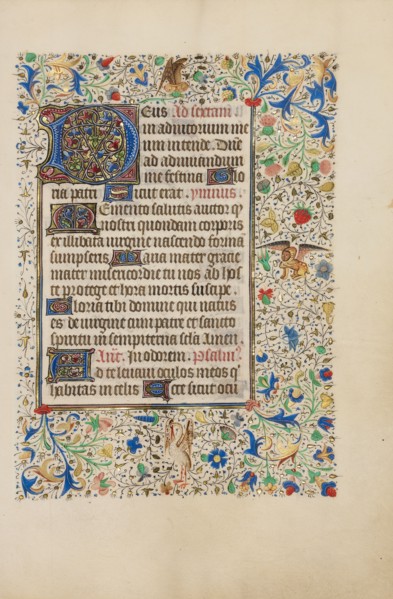 Deus Ad sextam
in adiutorium me
um intende. Dne
ad adiuuandum
me festina Glo
ria patri Sicut erat. ymnus.
Memento salutis auctor q
nostri quondam corporis
ex illibata uirgine nascendo forma
sumpseris Maria mater gracie
mater misericordie tu nos ab hos
te protege et hora mortis suscipe.
Gloria tibi domine qui natus
es de uirgine cum patre et sancto
spiritu in sempiterna secla Amen
Ant. In odorem. Psalm
Ad te leuaui oculos meos q
habitas in celis Ecce sicut ocu